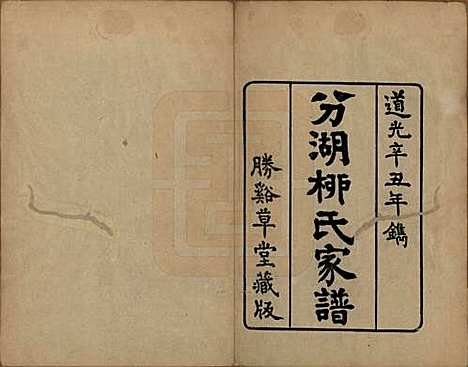 道光辛丑年鐫
分湖柳氏家譜
勝谿草堂藏版